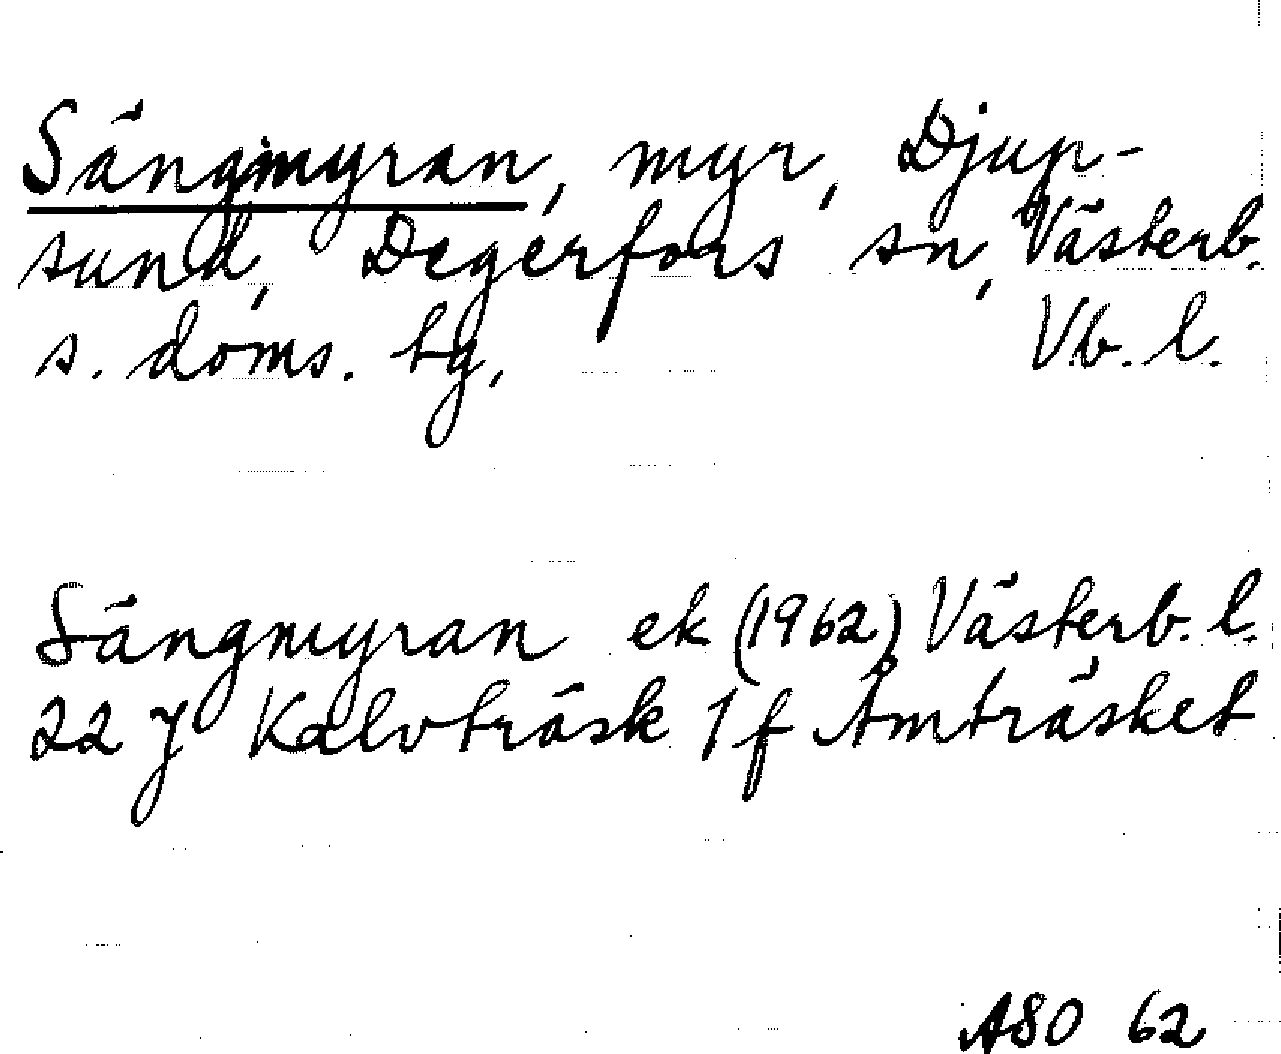 Sängmyran, myr, Djup-
sund, Degerfors sn, Västerb.
s. doms. tg, Vb. l.
Sängmyran ek (1962) Västerb. l.
22 J Kalvträsk 1 f Åmträsket
ASO 62